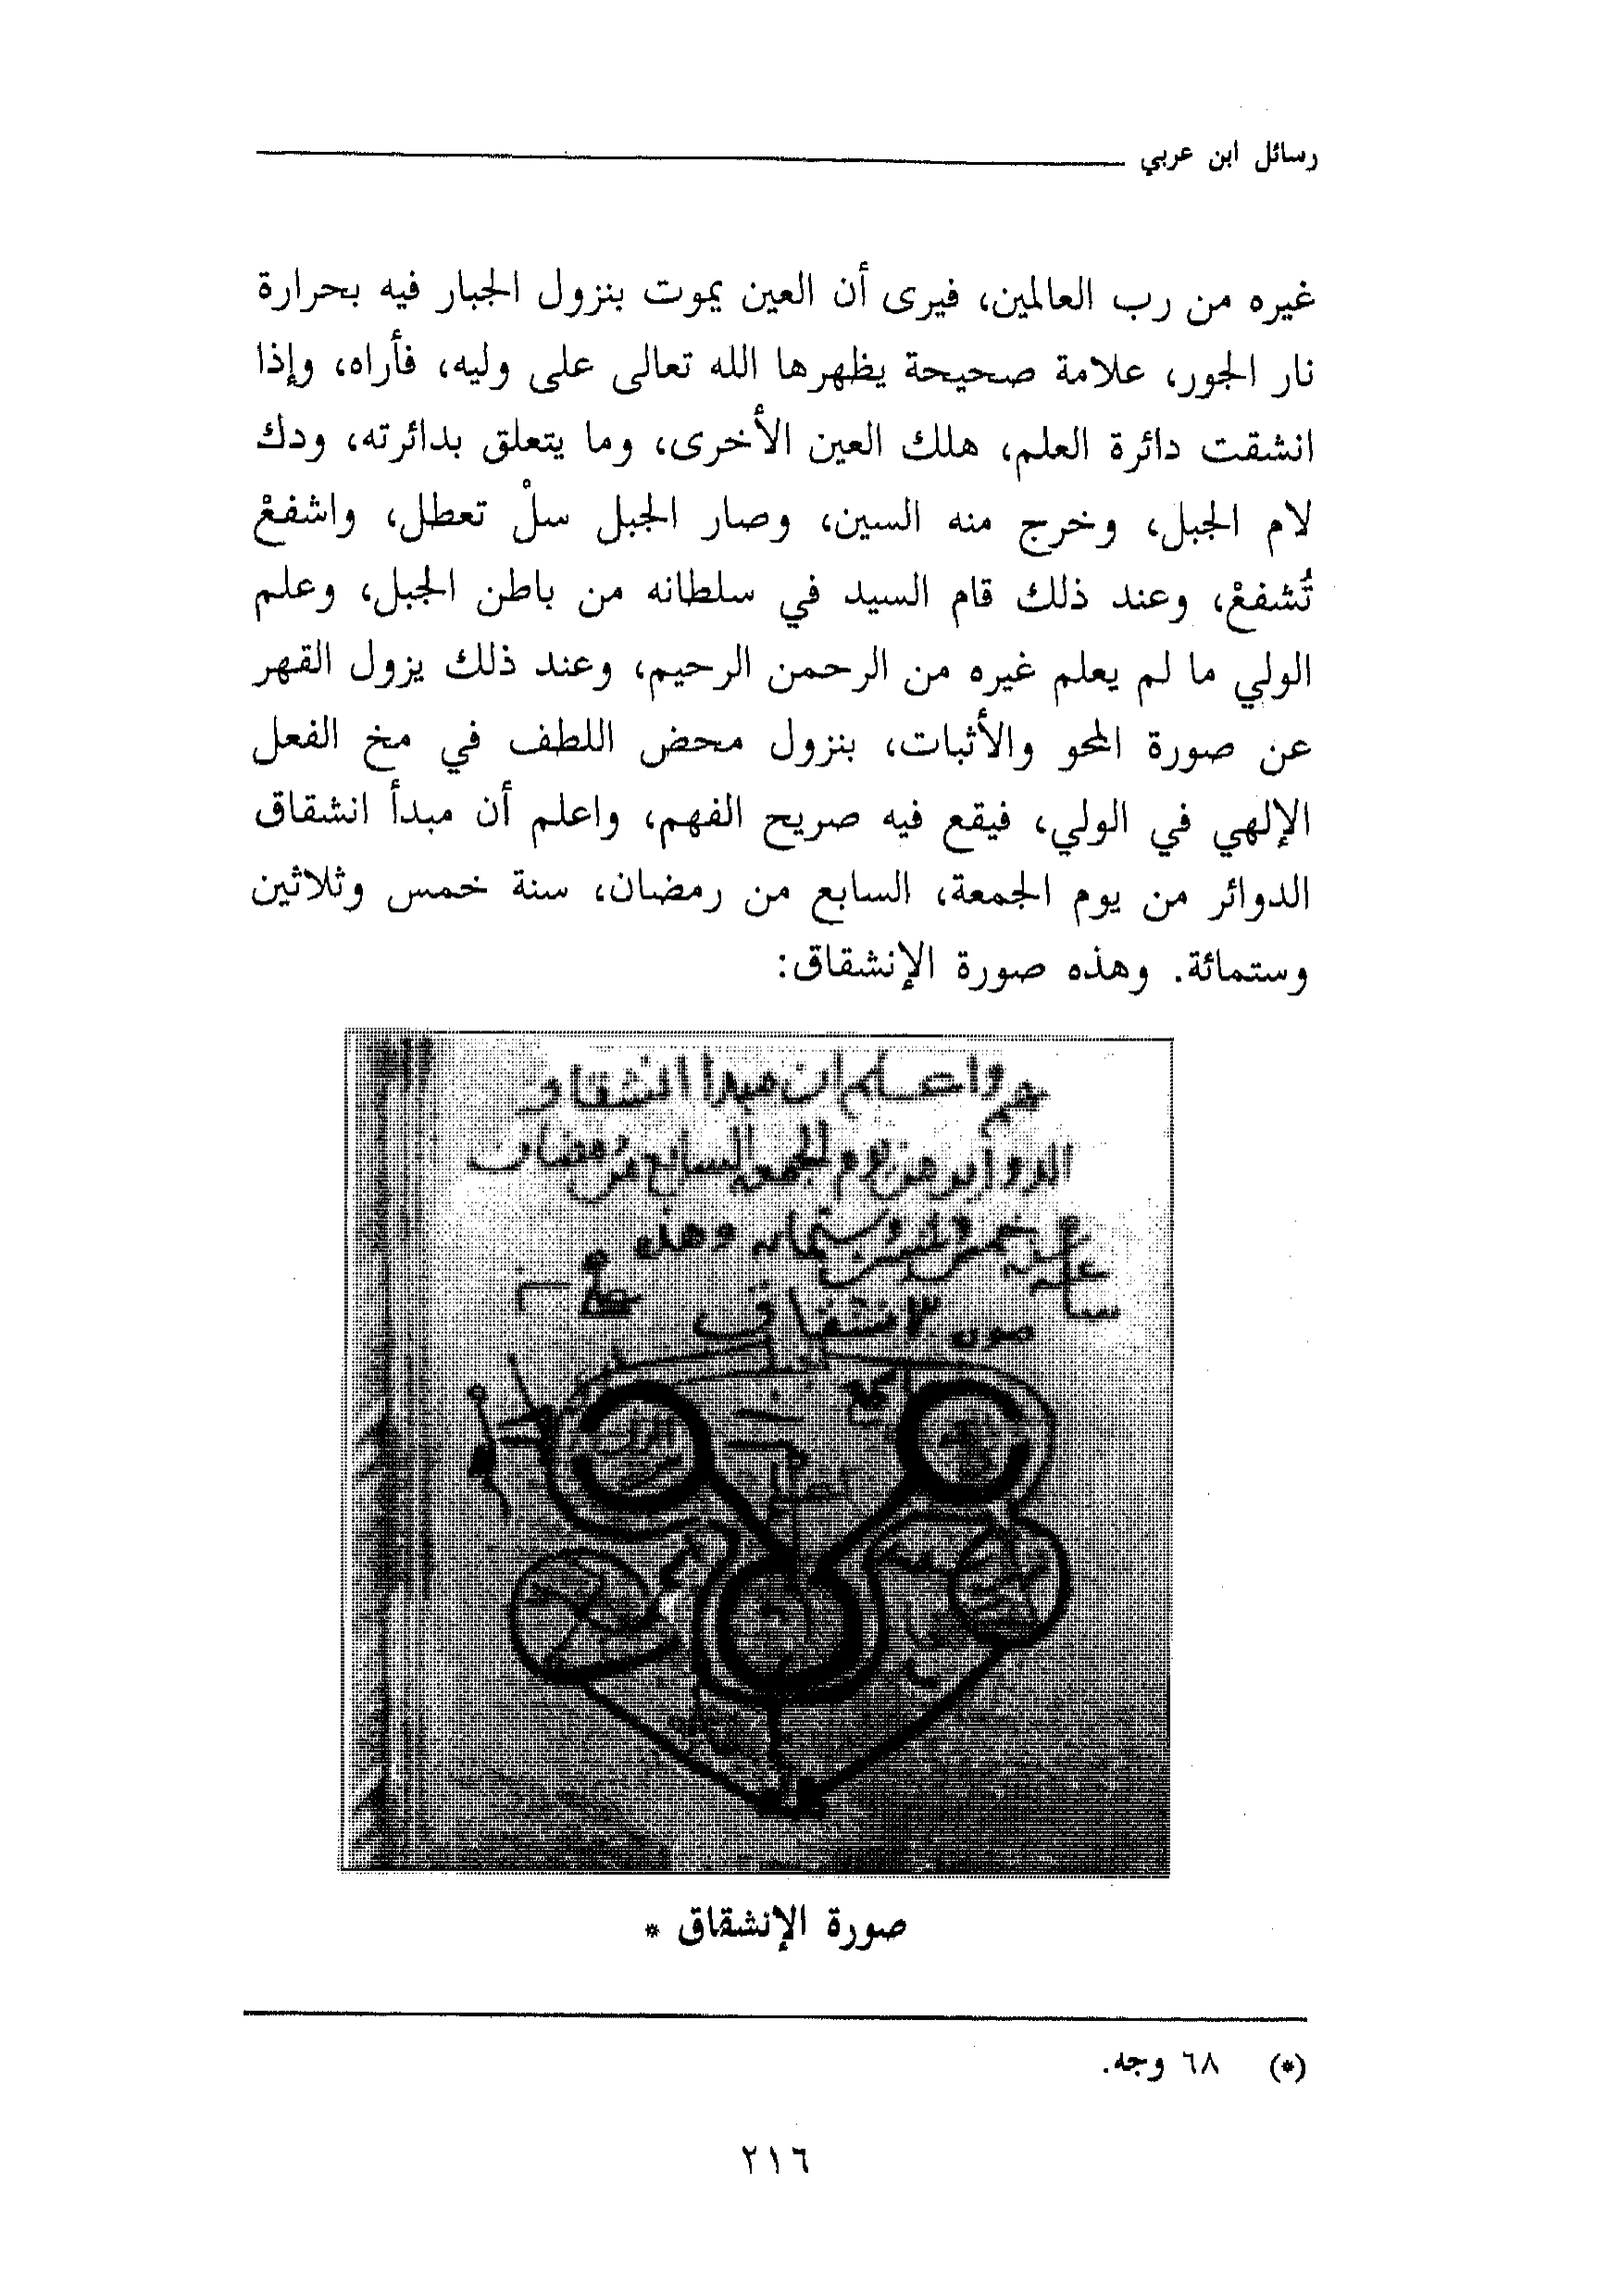 رسائل ابن عربي
غيره من رب العالمين، فيرى أن العين يموت بنزول الجبار فيه بحرارة
نار الجور، علامة صحيحة يظهرها الله تعالى على وليه، فأراه، وإذا
انشقت دائرة العلم، هلك العين الأخرى، وما يتعلق بدائرته، ودك
لام الجبل، وخرج منه السين، وصار الجبل سلْ تعطل، واشفعْ
تُشفعْ، وعند ذلك قام السيد في سلطانه من باطن الجبل، وعلم
الولي ما لم يعلم غيره من الرحمن الرحيم، وعند ذلك يزول القهر
عن صورة المحو والأثبات، بنزول محض اللطف في مخ الفعل
الإلهي في الولي، فيقع فيه صريح الفهم، واعلم أن مبدأ انشقاق
الدوائر من يوم الجمعة، السابع من رمضان، سنة خمس وثلاثين
وستمائة. وهذه صورة الإنشقاق:
واعلم ان مبدا انشقاق
الدواير من يوم الجمعه السابع من رمضان
وستمايه وهذه
صوره الانشقاق
صورة الإنشقاق *
(*) ٦٨ وجه.
٢١٦